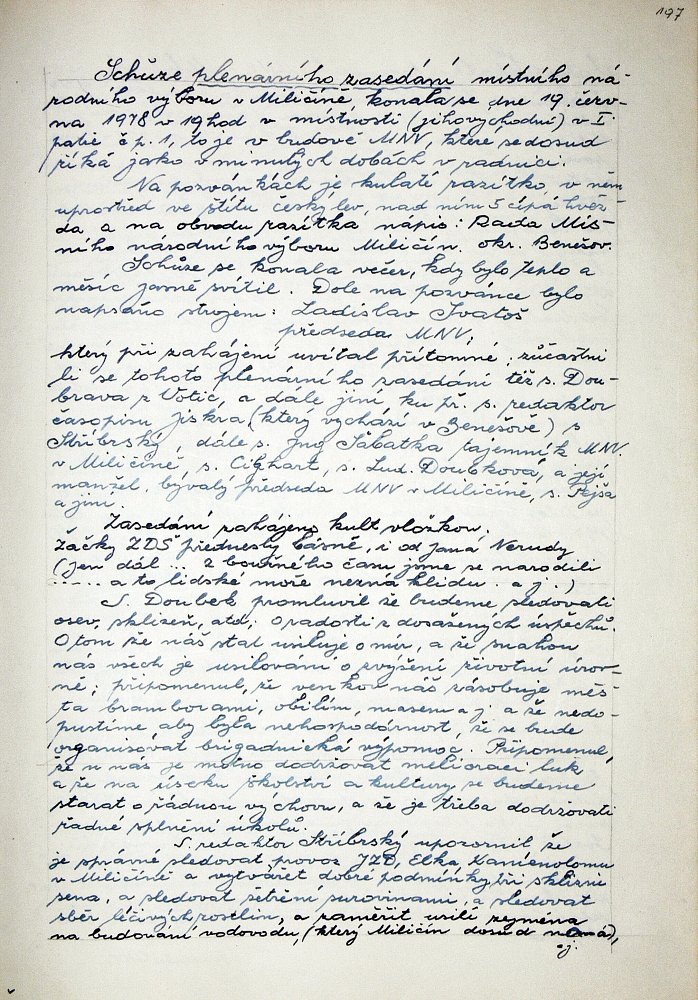 197
Schůze plenárního zasedání místního ná-
rodního výboru v Miličíně, konala se dne 19. červ-
na 1978 v 19 hod v místnosti (jihovychodní) v I.
patře č p. 1, to je v budově MNV, které se dosud
říká jako v minulých dobách v radnici.
Na pozvánkách je kulaté razítko, v něm
uprostřed ve štítu český lev, nad ním 5 cípá hvěz-
da a na obvodu razítka nápis: Rada Mís-
ního národního výboru Miličín. okr. Benešov.
Schůze se konala večer, kdy bylo teplo a
měsíc jasně svítil. Dole na pozvánce bylo
napsáno strojem: Ladislav Ivatoš
předseda MNV,
který při zahájení uvítal přítomné; zůčastni
li se tohoto plenárního zasedání též s. Dou-
brava z Votic, a dále jiní ku př. s. redaktor
časopisu Jiskra, (který vychází v Benešově) s
Stříbrský, dále s. Ing Sábatka tajemník MNV.
v Miličíně, s. Cighart, s. Lud. Doubková, a její
manžel, byvalý předseda MNV v Miličíně, s. Pejša
a jiní.
Zasedání zahájeno kult vložkou.
Žačky ZDŠ přednesly básně, i od Jana Nerudy
(Jen dál ... Z bouřného času jsme se narodili
..... a to lidské moře nezná klidu. a j.)
S. Doubek promluvil že budeme sledovati
osev, sklizeň, atd; o radosti z dosažených úspěchů.
O tom že náš stát usiluje o mír, a že snahou
nás všech je usilování o zvýšení životní úrov-
ně; připomenul, že venkov náš zásobuje měs-
ta bramborami, obilím, masem a j. a že nedo-
pustíme aby byla nehospodárnost, že se bude
organisovat brigadnická výpomoc. Připomenul,
že u nás je nutno dodržovat melioraci luk
a že na úseku školství a kultury se budeme
starat o řádnou výchovu, a že je třeba dodržovati
řadné splnění úkolů.
S. redaktor Stříbrský upozornil že
je správné sledovat provoz JZD, Elka Kamenolomu
v Miličíně a vytvářet dobré podmínky při sklizni
sena, a sledovat šetření surovinami, a sledovat
sběr léčivých rostlin, a zaměřit usilí zejména
na budování vodovodu, (který Miličín dosud nemá),
a j.